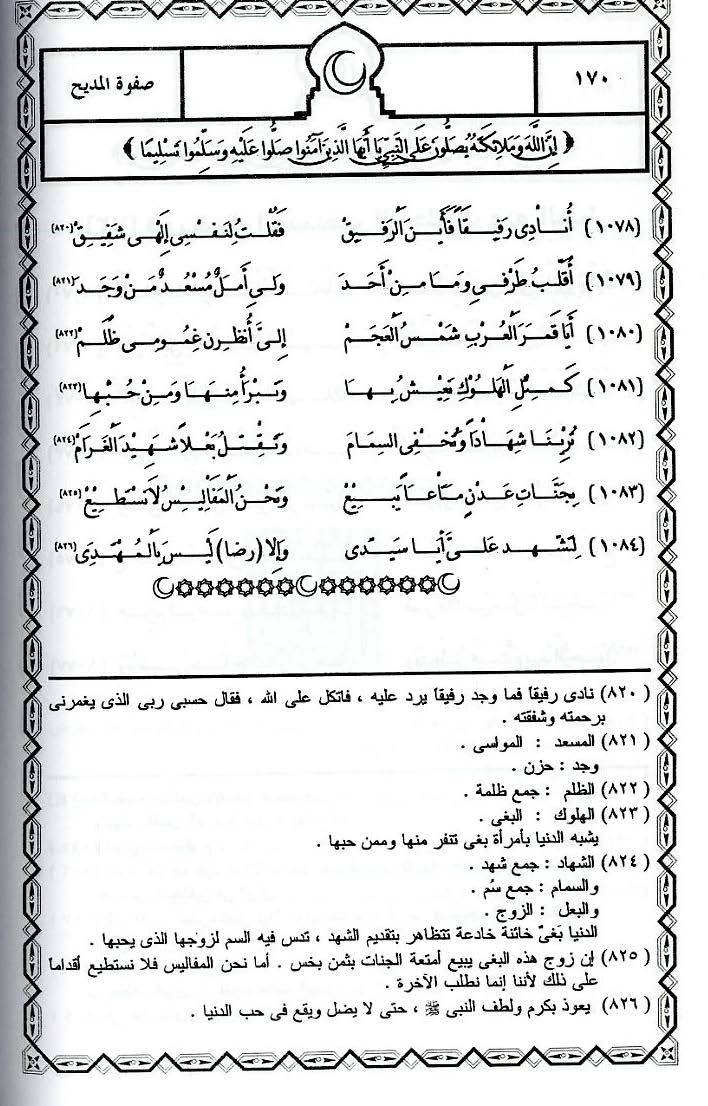 ١٧٠
صفوة المديح
﴿ إِنَّ اللَّهَ وَمَلَائِكَتَهُ يُصَلُّونَ عَلَى النَّبِيِّ يَا أَيُّهَا الَّذِينَ آمَنُوا صَلُّوا عَلَيْهِ وَسَلِّمُوا تَسْلِيمًا ﴾
(١٠٧٨) أُنَادِى رَفِيقًا فَأَيْنَ الرَّفِيقْ فَقُلْتُ لِنَفْسِى إِلَهِى شَفِيقْ (٨٢٠)
(١٠٧٩) أُقَلِّبُ طَرْفِى وَمَا مِنْ أَحَدَ وَلِى أَمَلٌ مُسْعِدٌ مَنْ وَجَدَ (٨٢١)
(١٠٨٠) أَيَا قَمَرَ الْعُرْبِ شَمْسُ الْعَجَمْ إِلَىَّ أُنْظُرِنْ غُمُومِى ظُلَمْ (٨٢٢)
(١٠٨١) كَمِثْلِ الْهَلُوكِ يَعِيشُ بِهَا وَنَبْرَأُ مِنْهَا وَمِنْ حُبِّهَا (٨٢٣)
(١٠٨٢) تُرِينَا شِهَادًا وَتُخْفِى السِّمَامَ وَتَقْتُلُ بَعْلًا شَهِيدَ الْغَرَامْ (٨٢٤)
(١٠٨٣) بِجَنَّاتِ عَدْنٍ مَتَاعًا يَبِيعْ وَنَحْنُ الْمَفَالِيسُ لَا نَسْتَطِيعْ (٨٢٥)
(١٠٨٤) لِتَشْهَدَ عَلَىَّ أَيَا سَيِّدِى وَإِلَّا (رضا) لَيْسَ بِالْمُهْتَدِى (٨٢٦)
(٨٢٠) نادى رفيقاً فما وجد رفيقاً يرد عليه ، فاتكل على الله ، فقال حسبى ربى الذى يغمرنى
برحمته وشفقته .
(٨٢١) المسعد : المواسى .
وجد : حزن .
(٨٢٢) الظلم : جمع ظلمة .
(٨٢٣) الهلوك : البغى .
يشبه الدنيا بأمرأة بغى تتفر منها وممن حبها .
(٨٢٤) الشهاد : جمع شهد .
والسمام : جمع سُم .
والبعل : الزوج .
الدنيا بَغىٌ خائنة خادعة تتظاهر بتقديم الشهد ، تدس فيه السم لزوجها الذى يحبها .
(٨٢٥) إن زوج هذه البغى يبيع أمتعة الجنات بثمن بخس . أما نحن المفاليس فلا نستطيع أقداماً
على ذلك لأننا إنما نطلب الآخرة .
(٨٢٦) يعوذ بكرم ولطف النبى ﷺ ، حتى لا يضل ويقع فى حب الدنيا .